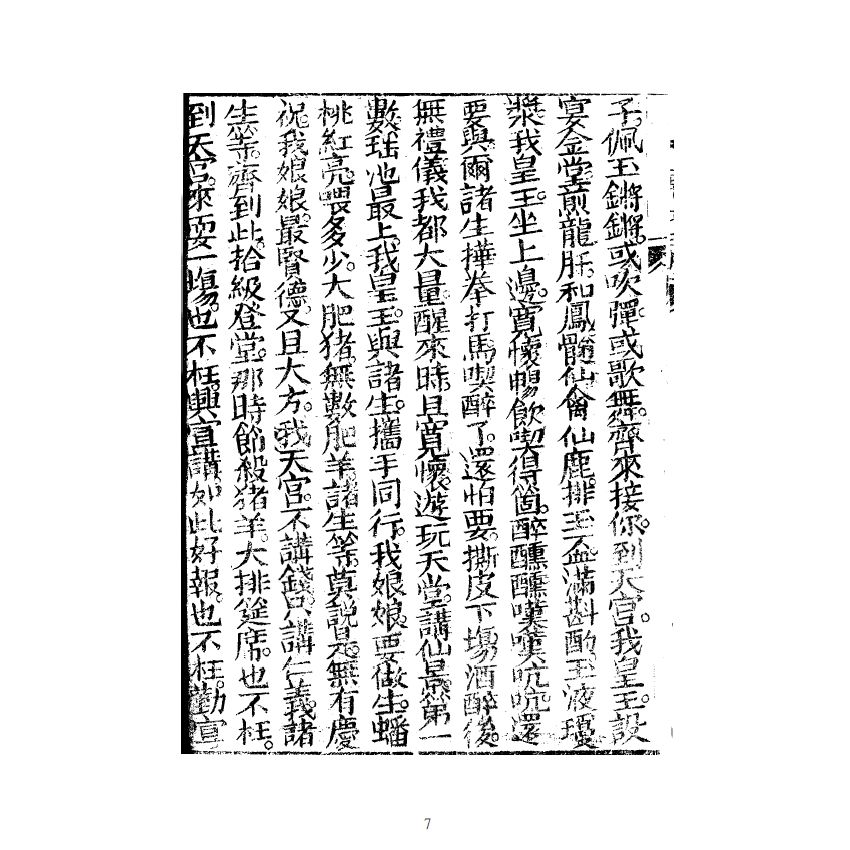 子。佩玉鏘鏘。或吹彈。或歌舞。齊來接你。到天宫。我皇王。設
宴金堂。煎龍肝。和鳳髓。仙禽仙鹿。排玉盃。滿斟酌。玉液瓊
漿。我皇王。坐上邊。寬懷暢飲。喫得箇。醉醺醺。嘆嘆吭吭。還
要與爾諸生。摣拳打馬。喫醉了。還怕要。撕皮下塲。酒醉後。
無禮儀。我都大量。醒來時。且寬懷。遊玩天堂。講仙景。第一
數。瑶池最上。我皇王。與諸生。攜手同行。我娘娘。要做生。蟠
桃紅亮。喂多少。大肥猪。無數肥羊。諸生等。莫説是。無有慶
祝。我娘娘。最賢德。又且大方。我天宫。不講錢。只講仁義。諸
生等。齊到此。拾級登堂。那時節。殺猪羊。大排筵席。也不枉。
到天宫。來耍一塲。也不枉。興宣講。如此好報。也不枉。勸宣
7